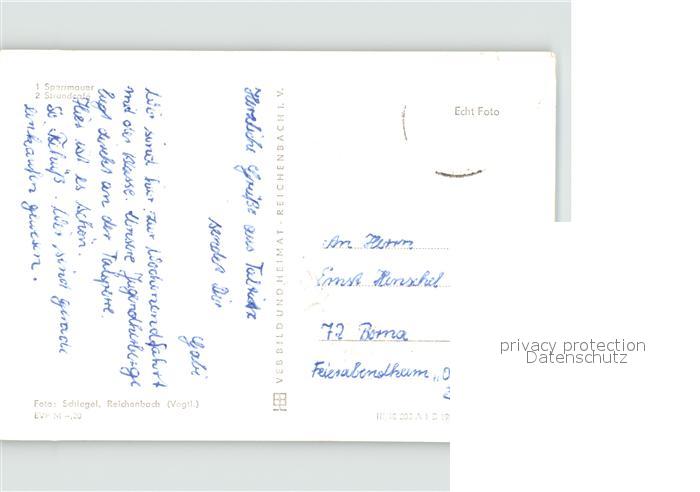 1 Sperrmauer
2 Strandcafé
Herzliche Grüße aus Taltitz
sendet Dir
Gabi
Wir sind hier zur Wochenendfahrt
mit der Klasse. Unsere Jugendherberge
liegt direkt an der Talsperre.
Hier ist es schön.
Wir sind gerade
einkaufen gewesen.
VEB BILD UND HEIMAT · REICHENBACH I. V.
Echt Foto
An Herrn
Ernst Henschel
72 Borna
Feierabendheim „
Foto: Schlegel, Reichenbach (Vogtl.)
EVP M -,20
privacy protection
Datenschutz